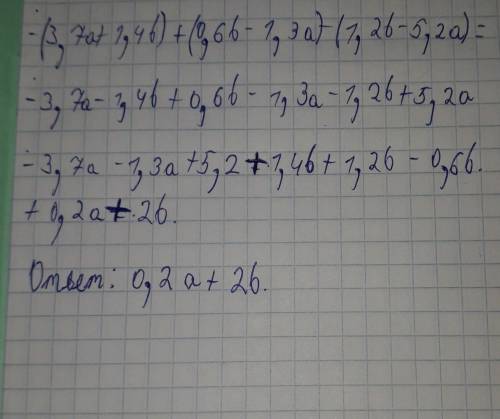 -(3,7a+1,4b)+(0,6b-1,3a)-(1,2b-5,2a)=
-3,7a-1,4b+0,6b-1,3a-1,2b+5,2a
-3,7a-1,3a+5,2+1,4b+1,2b-0,6b.
+0,2a+2b.
Ответ: 0,2a+2b.